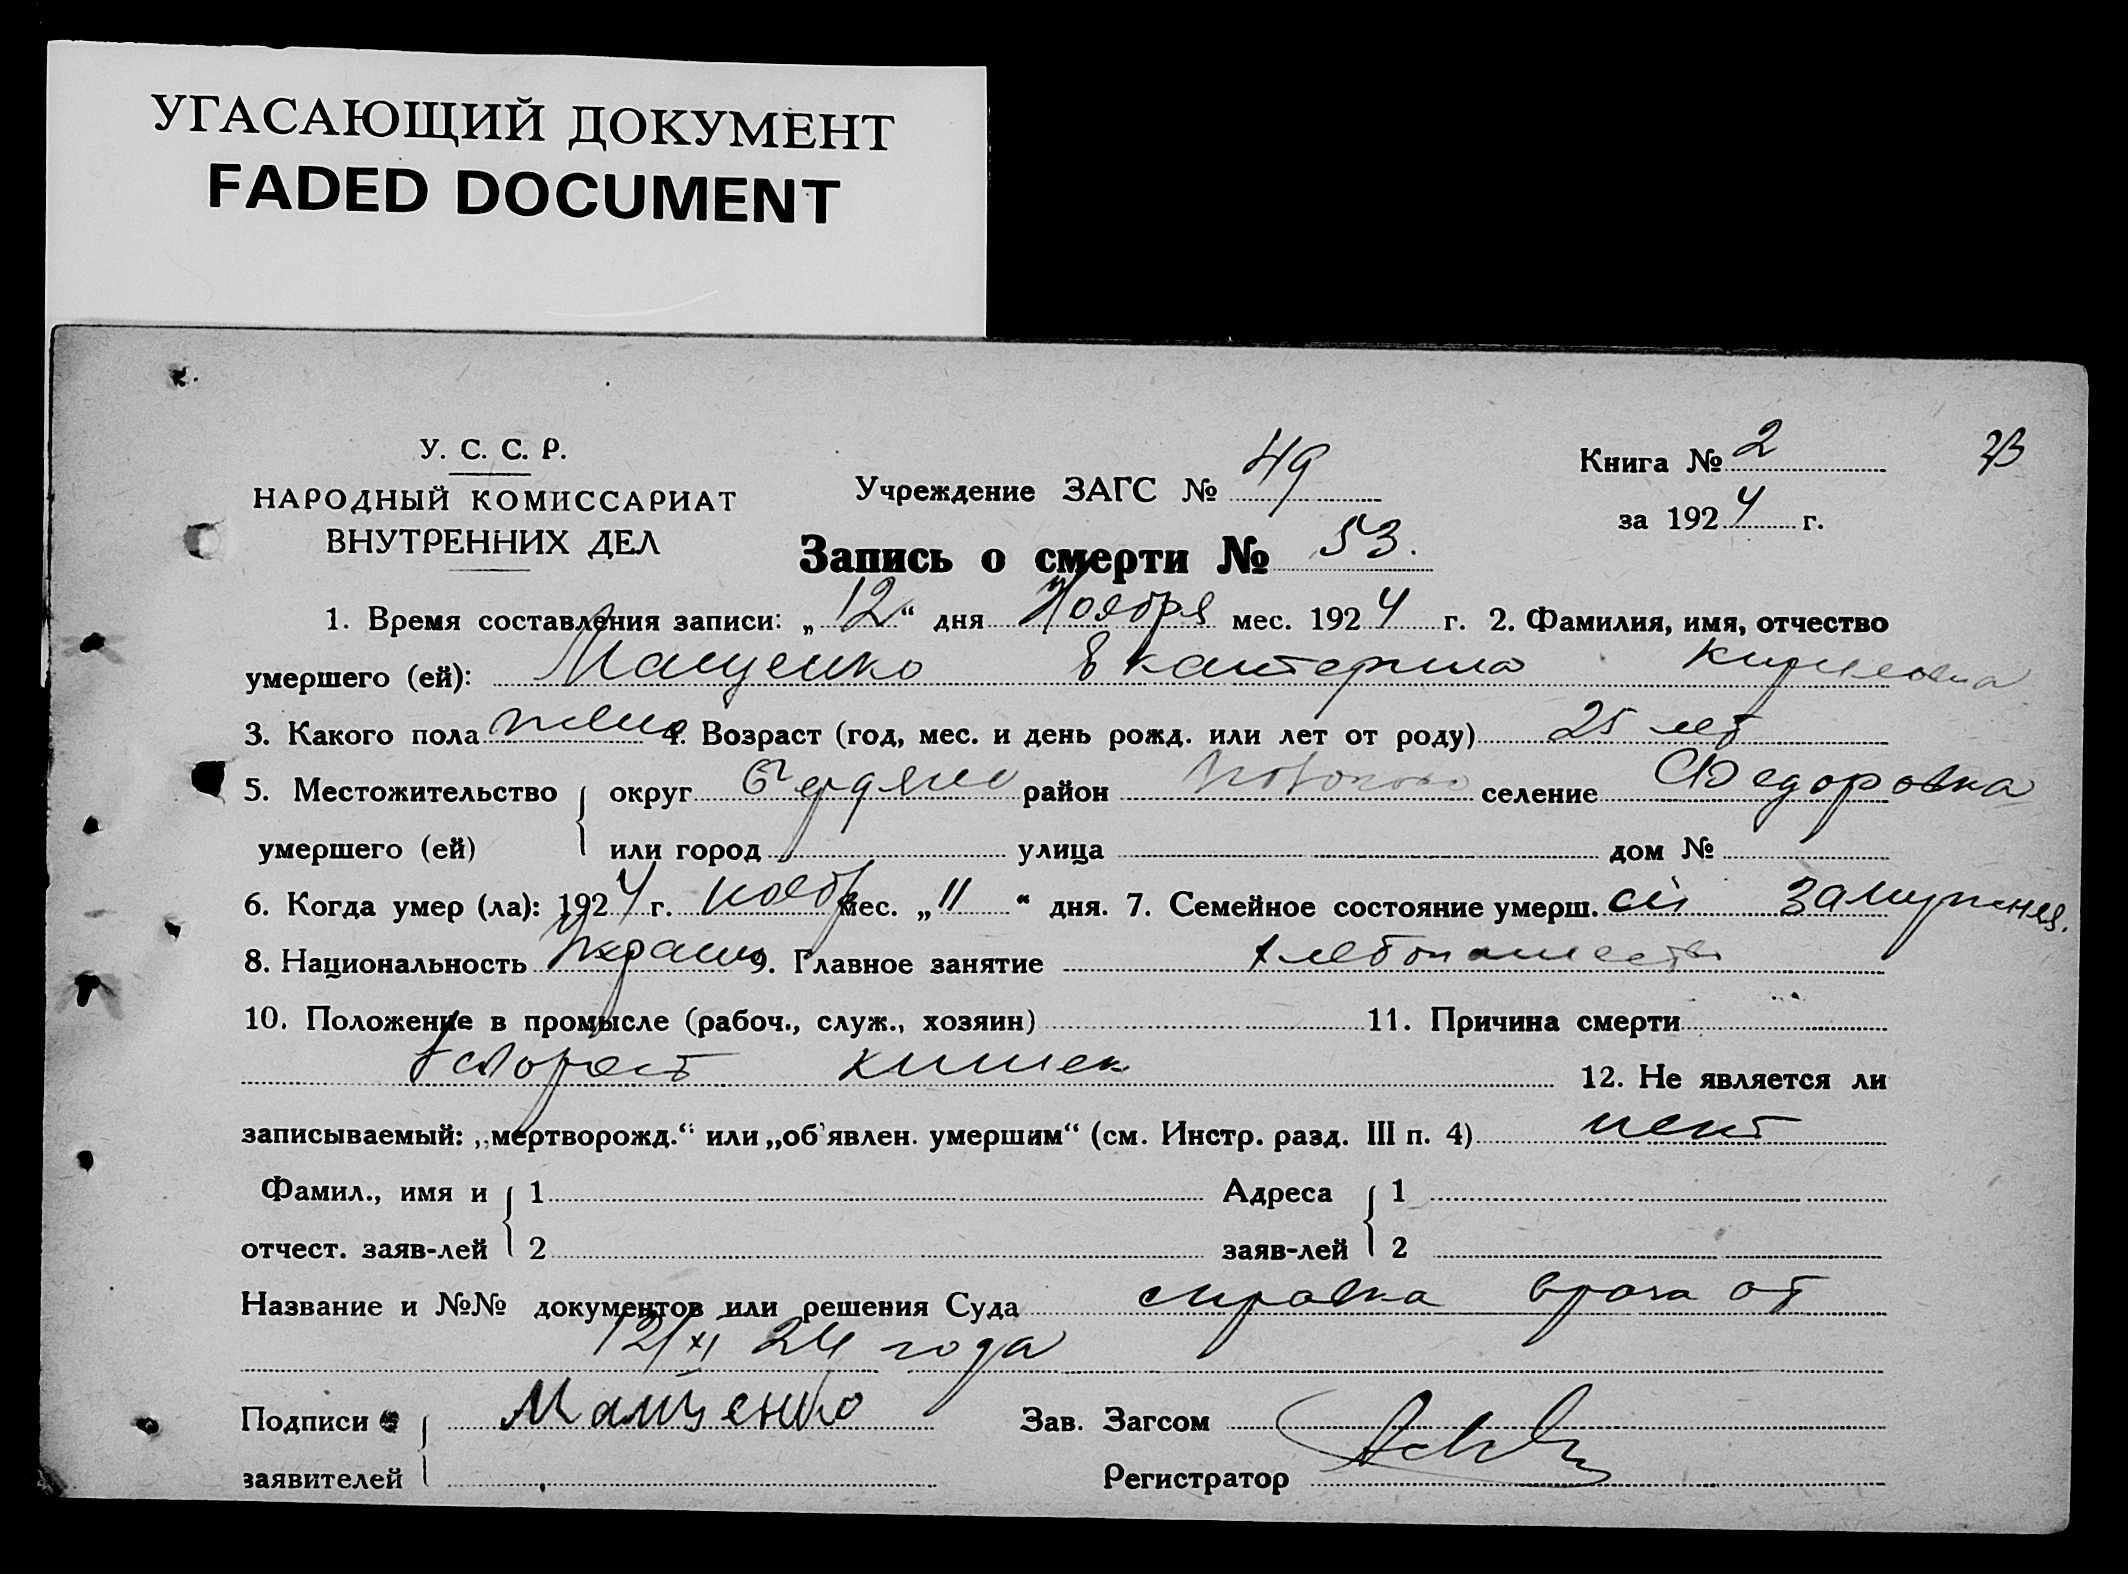 УГАСАЮЩИЙ ДОКУМЕНТ
FADED DOCUMENT
У. С. С. Р.
НАРОДНЫЙ КОМИССАРИАТ
ВНУТРЕННИХ ДЕЛ
Учреждение ЗАГС № 49
Книга № 2
за 1924 г.
Запись о смерти № 53.
1. Время составления записи: „12“ дня Ноября мес. 1924 г. 2. Фамилия, имя, отчество
умершего (ей): Мащенко Екатерина Кириловна
3. Какого пола женс 4. Возраст (год, мес. и день рожд. или лет от роду) 25 лет
5. Местожительство округ Бердянс район селение Федоровка
умершего (ей) или город улица дом №
6. Когда умер (ла): 1924 г. нояб мес. „11“ дня. 7. Семейное состояние умерш. замужняя.
8. Национальность Украин 9. Главное занятие хлебопашество
10. Положение в промысле (рабоч., служ., хозяин) 11. Причина смерти
кишек 12. Не является ли
записываемый: „мертворожд.“ или „об'явлен. умершим“ (см. Инстр. разд. III п. 4) нет
Фамил., имя и 1 Адреса 1
отчест. заяв-лей 2 заяв-лей 2
Название и №№ документов или решения Суда справка врача от
12/XI 24 года
Подписи Мащенко Зав. Загсом
заявителей Регистратор